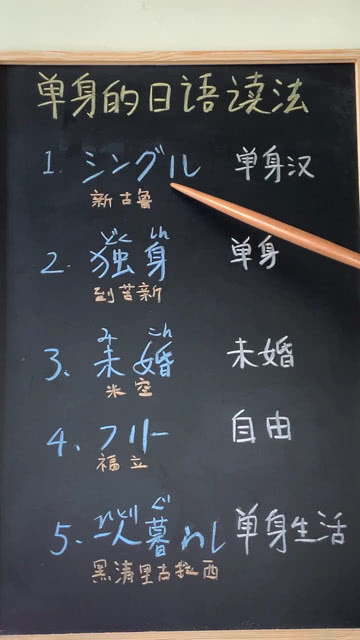 单身的日语读法
1. シングル 单身汉
新古鲁
どくしん
2. 独身 单身
到苦新
みこん
3、未婚 未婚
米空
4、フリー 自由
福立
ひとりぐ
5、一人暮わし 单身生活
黑涛里古拉西